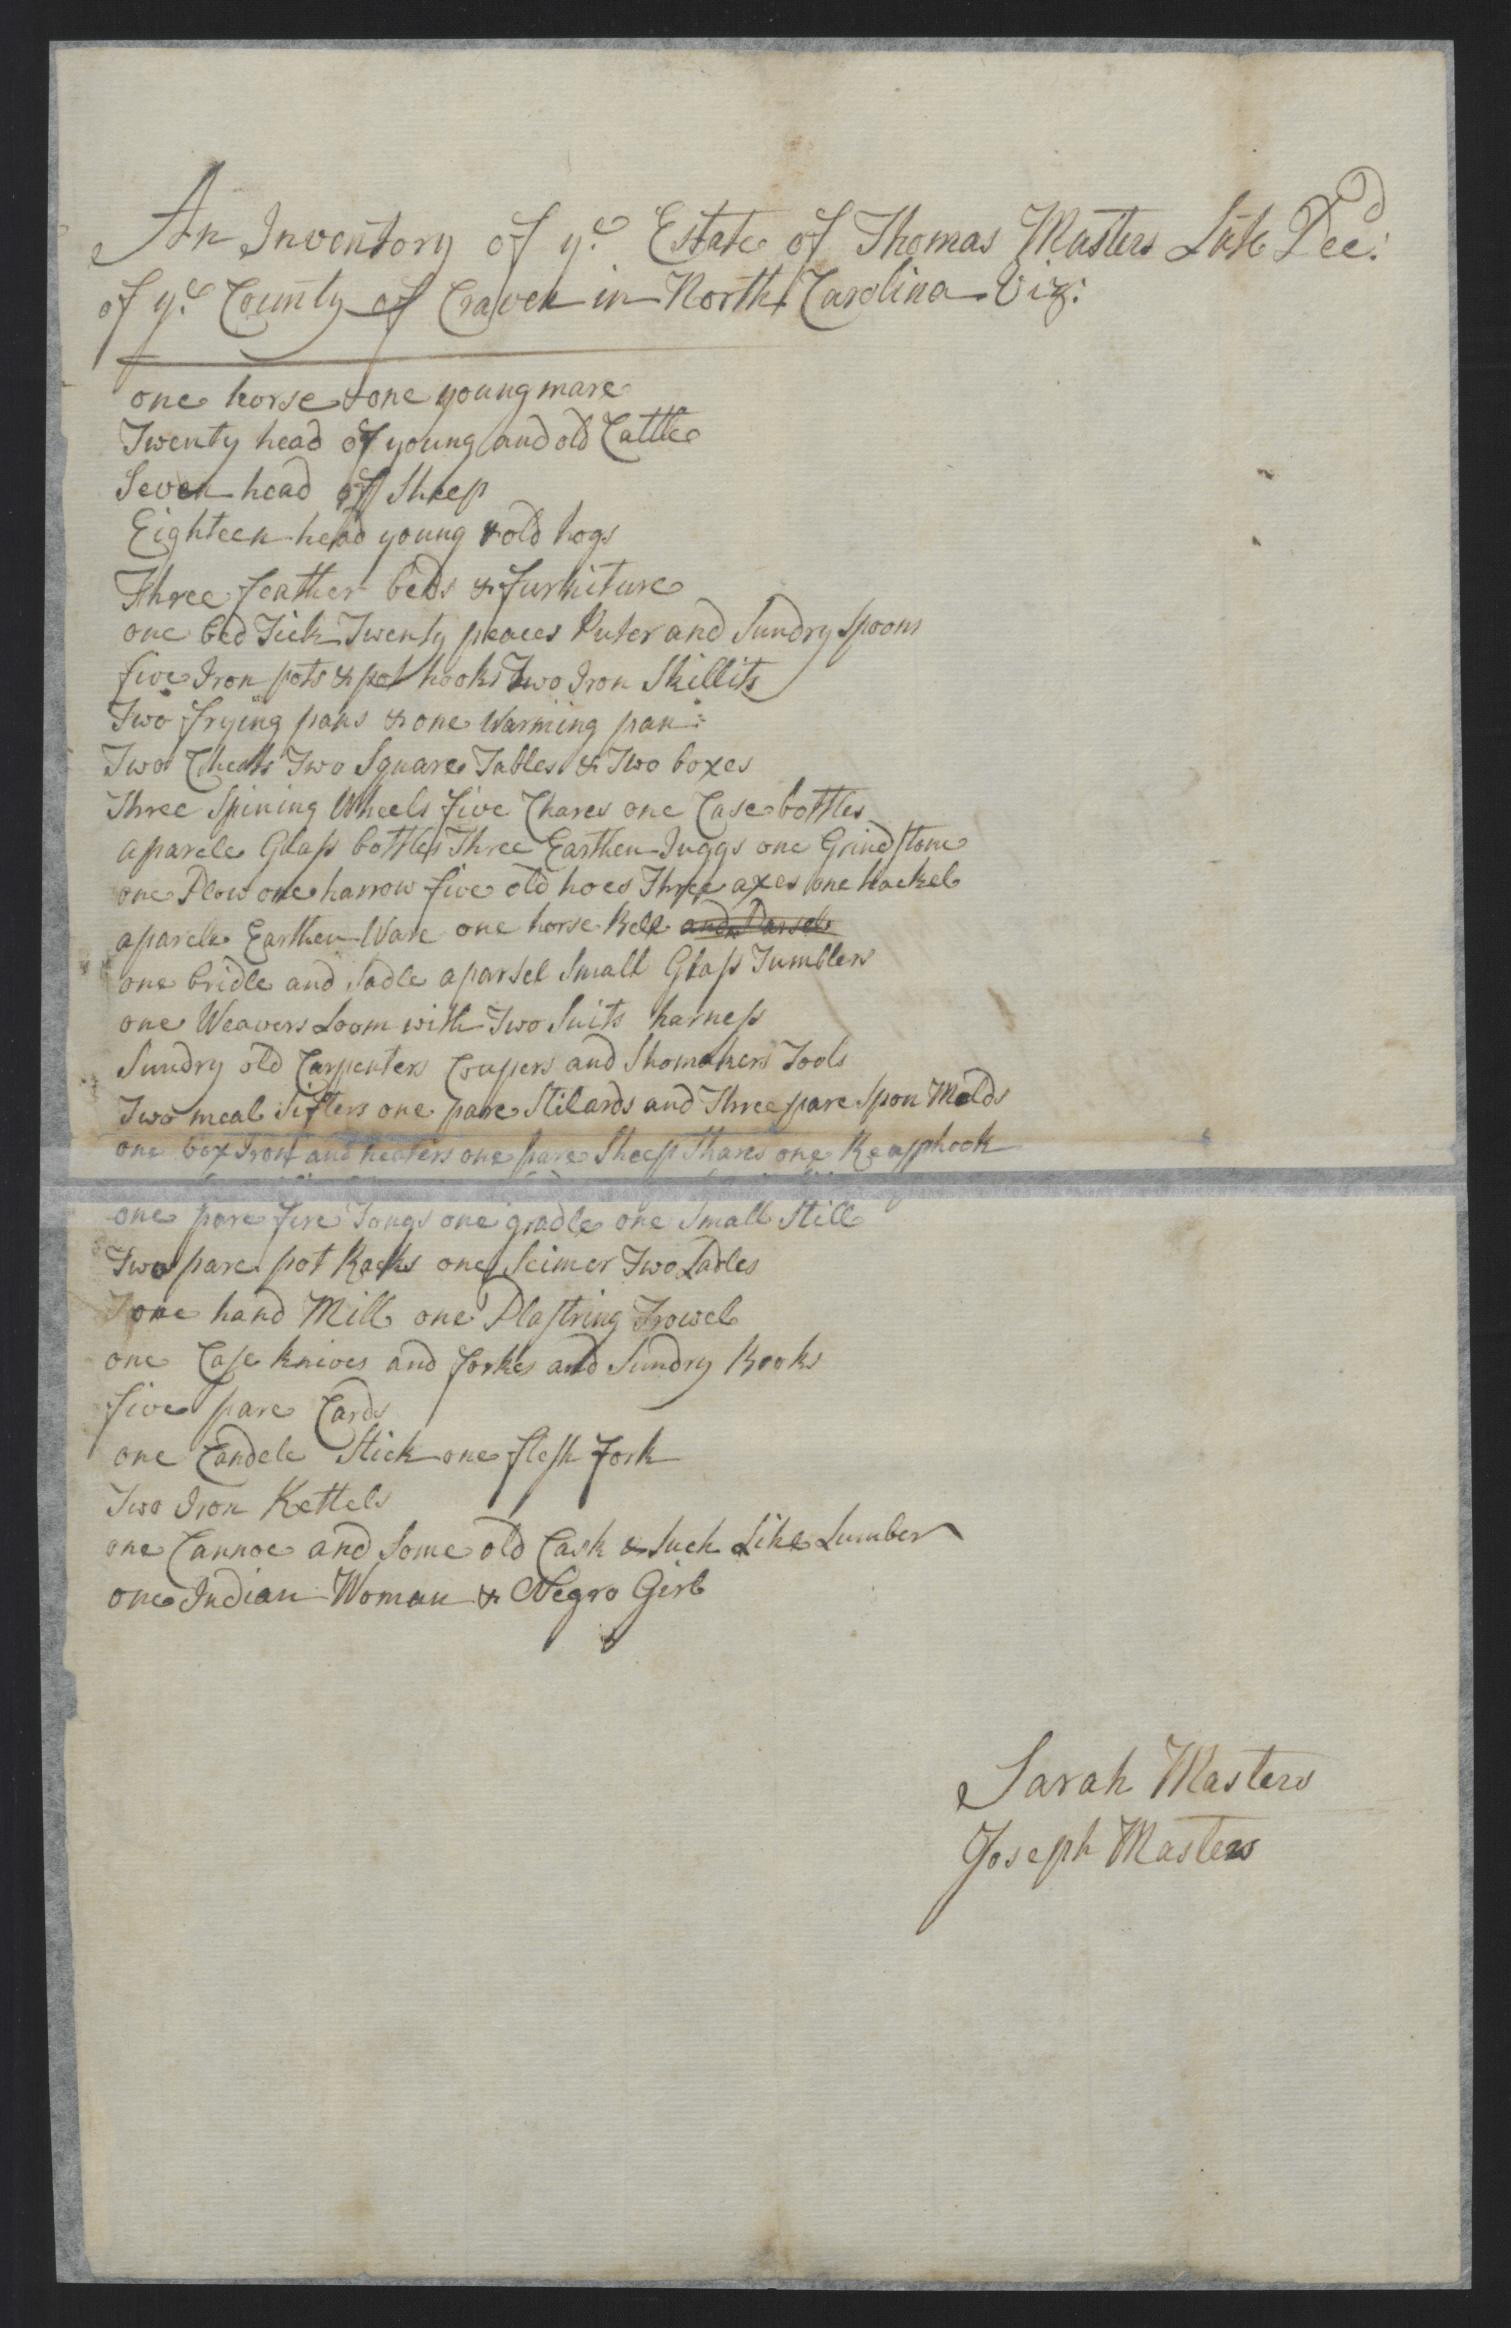 An Inventory of ye Estate of Thomas Masters Late Decd:
of ye County of Craven in North Carolina Viz:
one horse & one young mare
Twenty head of young and old Cattle
Seven head of Sheep
Eighteen head young & old hogs
Three feather beds & furniture
one bed Tick Twenty peaces Puter and Sundry Spoons
five Iron pots & pot hooks Two Iron Skillits
Two frying pans & one Warming pan
Two Chests Two Square Tables & Two boxes
Three Spining Wheels five Chares one Case bottles
a parcle Glass bottles Three Earthen Juggs one Grindstone
one Plow one harrow five old hoes Three axes one hackel
a parcle Earthen Ware one horse Bell and Parsels
one bridle and Sadle a parsel Small Glass Tumblers
one Weavers Loom with Two Suits harness
Sundry old Carpenters Coupers and Shomakers Tools
Two meal Sifters one pare Stilards and Three pare Spon Molds
one box Iron and heaters one pare Sheep Shares one Reaphook
one pare fire Tongs one gradle one Small Still
Two pare pot Racks one Scimer Two Ladles
one hand Mill one Plastring Trowel
one Case knives and forkes and Sundry Books
five pare Cards
one Candele Stick one flesh fork
Two Iron Kettels
one Cannoe and Some old Cask & Such Like Lumber
one Indian Woman & Negro Girl
Sarah Masters
Joseph Masters